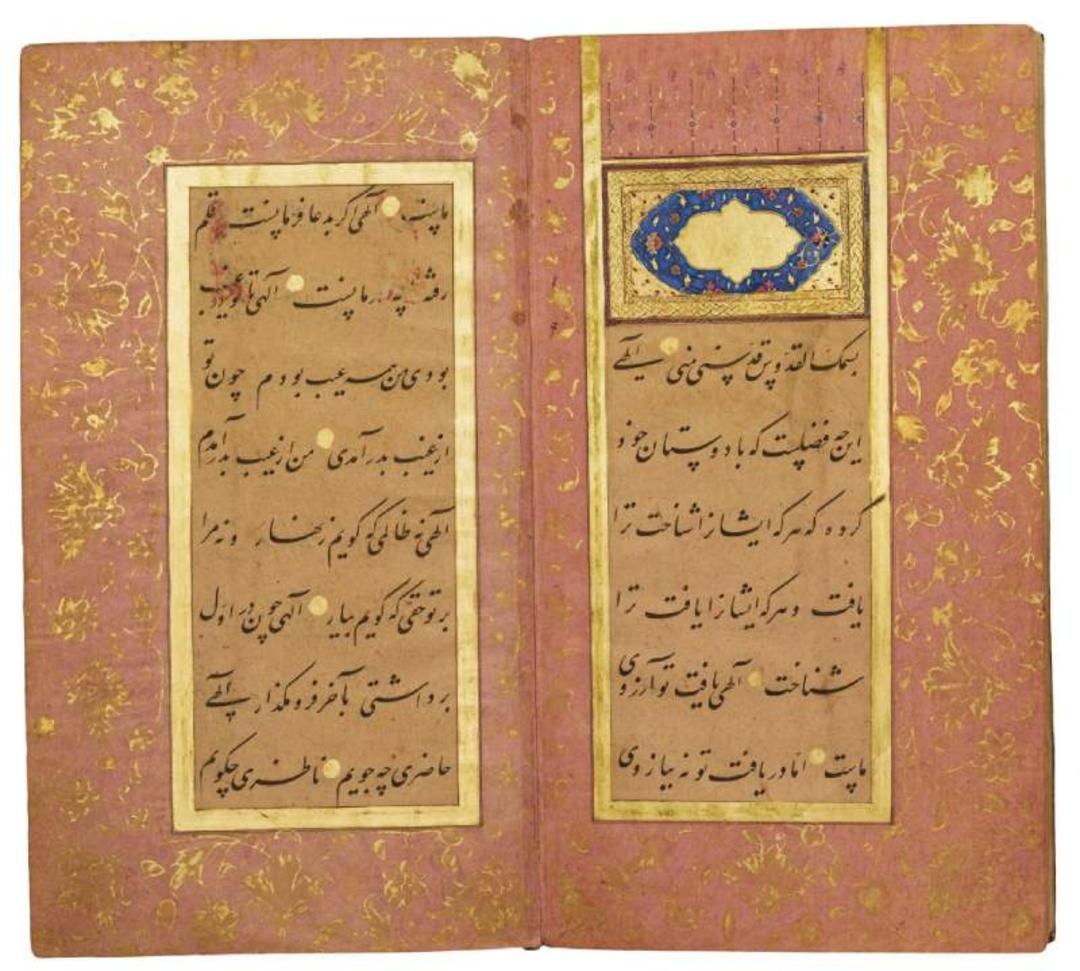 بسمک القدوس قدسنی منی الهی
این چه فضلست که با دوستان خود
کرده که هر که ایشانرا شناخت ترا
یافت و هر که ایشانرا یافت ترا
شناخت الهی یافت تو آرزوی
ماست اما دریافت تو نه ببازوی
ماست الهی اگر بدعا فرمانست قلم
رفته را چه درمانست الهی تا تو در غیب
بودی من همه عیب بودم چون تو
از غیب بدر آمدی من از عیب بدر آمدم
الهی نه ظالمی که گویم زنهار و نه مرا
بر تو حقی که گویم بیار الهی چون در اول
برداشتی بآخر فرومگذار الهی
حاضری چه جویم ناظری چگویم